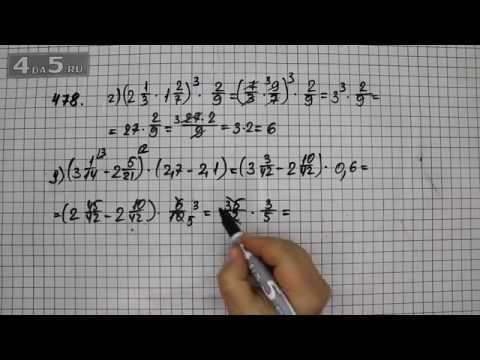 4DA5.RU
478. г) (2 1/3 · 1 2/7)³ · 2/9 = (7/3 · 9³/7)³ · 2/9 = 3³ · 2/9 =
= 27 · 2/9 = ³27·2/9 = 3·2 = 6
д) (3 1/14^3 - 2 5/21^2) · (2,7 - 2,1) = (3 3/42 - 2 10/42) · 0,6 =
= (2 45/42 - 2 10/42) · 6/10 3/5 = 35/42 · 3/5 =